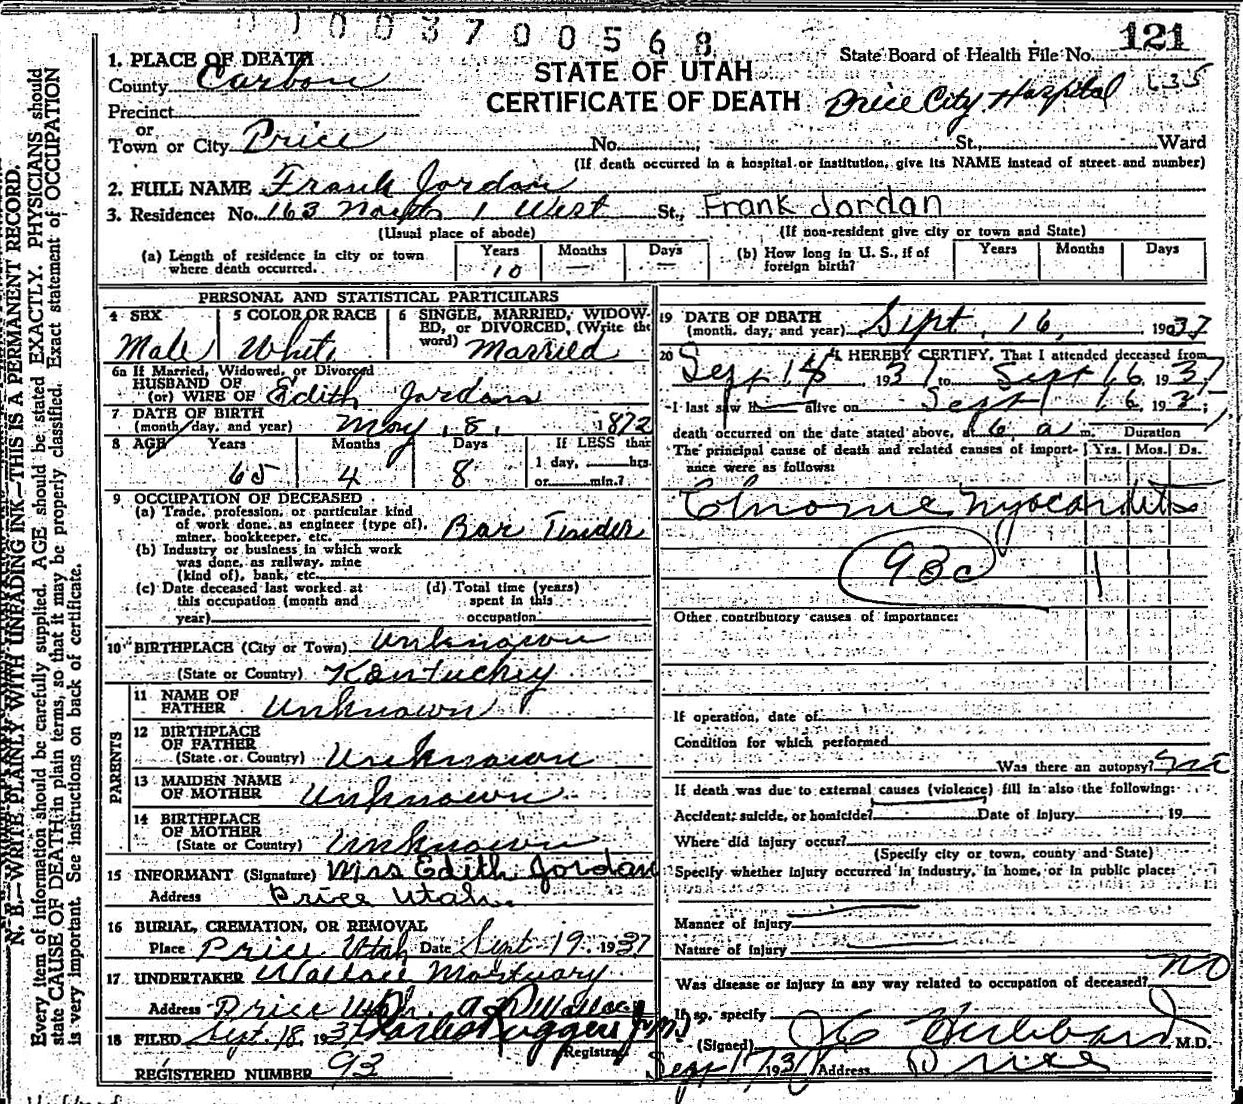 0 1 0 0 3 7 0 0 5 6 8
121
1. PLACE OF DEATH
State Board of Health File No.
County Carbon
STATE OF UTAH
CERTIFICATE OF DEATH
Price City Hospital
Precinct
or
Town or City Price No. St., Ward
(If death occurred in a hospital or institution, give its NAME instead of street and number)
2. FULL NAME Frank Jordan
3. Residence: No. 163 North 1 West St., Frank Jordan
(Usual place of abode) (If non-resident give city or town and State)
(a) Length of residence in city or town where death occurred. Years 10 Months — Days —
(b) How long in U. S., if of foreign birth? Years Months Days
PERSONAL AND STATISTICAL PARTICULARS
4 SEX Male
5 COLOR OR RACE White
6 SINGLE, MARRIED, WIDOWED, or DIVORCED, (Write the word) Married
6a If Married, Widowed, or Divorced
HUSBAND OF
(or) WIFE OF Edith Jordan
7 DATE OF BIRTH
(month, day, and year) May 8, 1872
8 AGE Years 65 Months 4 Days 8 If LESS than 1 day, hrs. or min.?
9 OCCUPATION OF DECEASED
(a) Trade, profession, or particular kind of work done, as engineer (type of), miner, bookkeeper, etc. Bar Tender
(b) Industry or business in which work was done, as railway, mine (kind of), bank, etc.
(c) Date deceased last worked at this occupation (month and year)
(d) Total time (years) spent in this occupation
10 BIRTHPLACE (City or Town) Unknown
(State or Country) Kentuckey
PARENTS
11 NAME OF FATHER Unknown
12 BIRTHPLACE OF FATHER
(State or Country) Unknown
13 MAIDEN NAME OF MOTHER Unknown
14 BIRTHPLACE OF MOTHER
(State or Country) Unknown
15 INFORMANT (Signature) Mrs Edith Jordan
Address Price Utah.
16 BURIAL, CREMATION, OR REMOVAL
Place Price Utah Date Sept 19 1937
17 UNDERTAKER Wallace Mortuary
Address Price Utah. Wallace
18 FILED Sept. 18, 1937 Charles Ruggeri
Registrar
REGISTERED NUMBER 93
19 DATE OF DEATH
(month, day, and year) Sept. 16, 1937
20 I HEREBY CERTIFY, That I attended deceased from
Sept 1937 to Sept 16, 1937
I last saw h alive on Sept 16 1937;
death occurred on the date stated above, at 6 a m. Duration
The principal cause of death and related causes of importance were as follows: Yrs. Mos. Ds.
Chronic Myocarditis
93c
1
Other contributory causes of importance:
If operation, date of
Condition for which performed
Was there an autopsy? no
If death was due to external causes (violence) fill in also the following:
Accident, suicide, or homicide? Date of injury 19
Where did injury occur?
(Specify city or town, county and State)
Specify whether injury occurred in industry, in home, or in public place:
Manner of injury
Nature of injury
Was disease or injury in any way related to occupation of deceased? no
If so, specify
(Signed) Hubbard M.D.
Sept 17 1937 Address Price
N. B.—WRITE PLAINLY WITH UNFADING INK—THIS IS A PERMANENT RECORD.
Every item of information should be carefully supplied. AGE should be stated EXACTLY. PHYSICIANS should
state CAUSE OF DEATH in plain terms, so that it may be properly classified. Exact statement of OCCUPATION
is very important. See instructions on back of certificate.